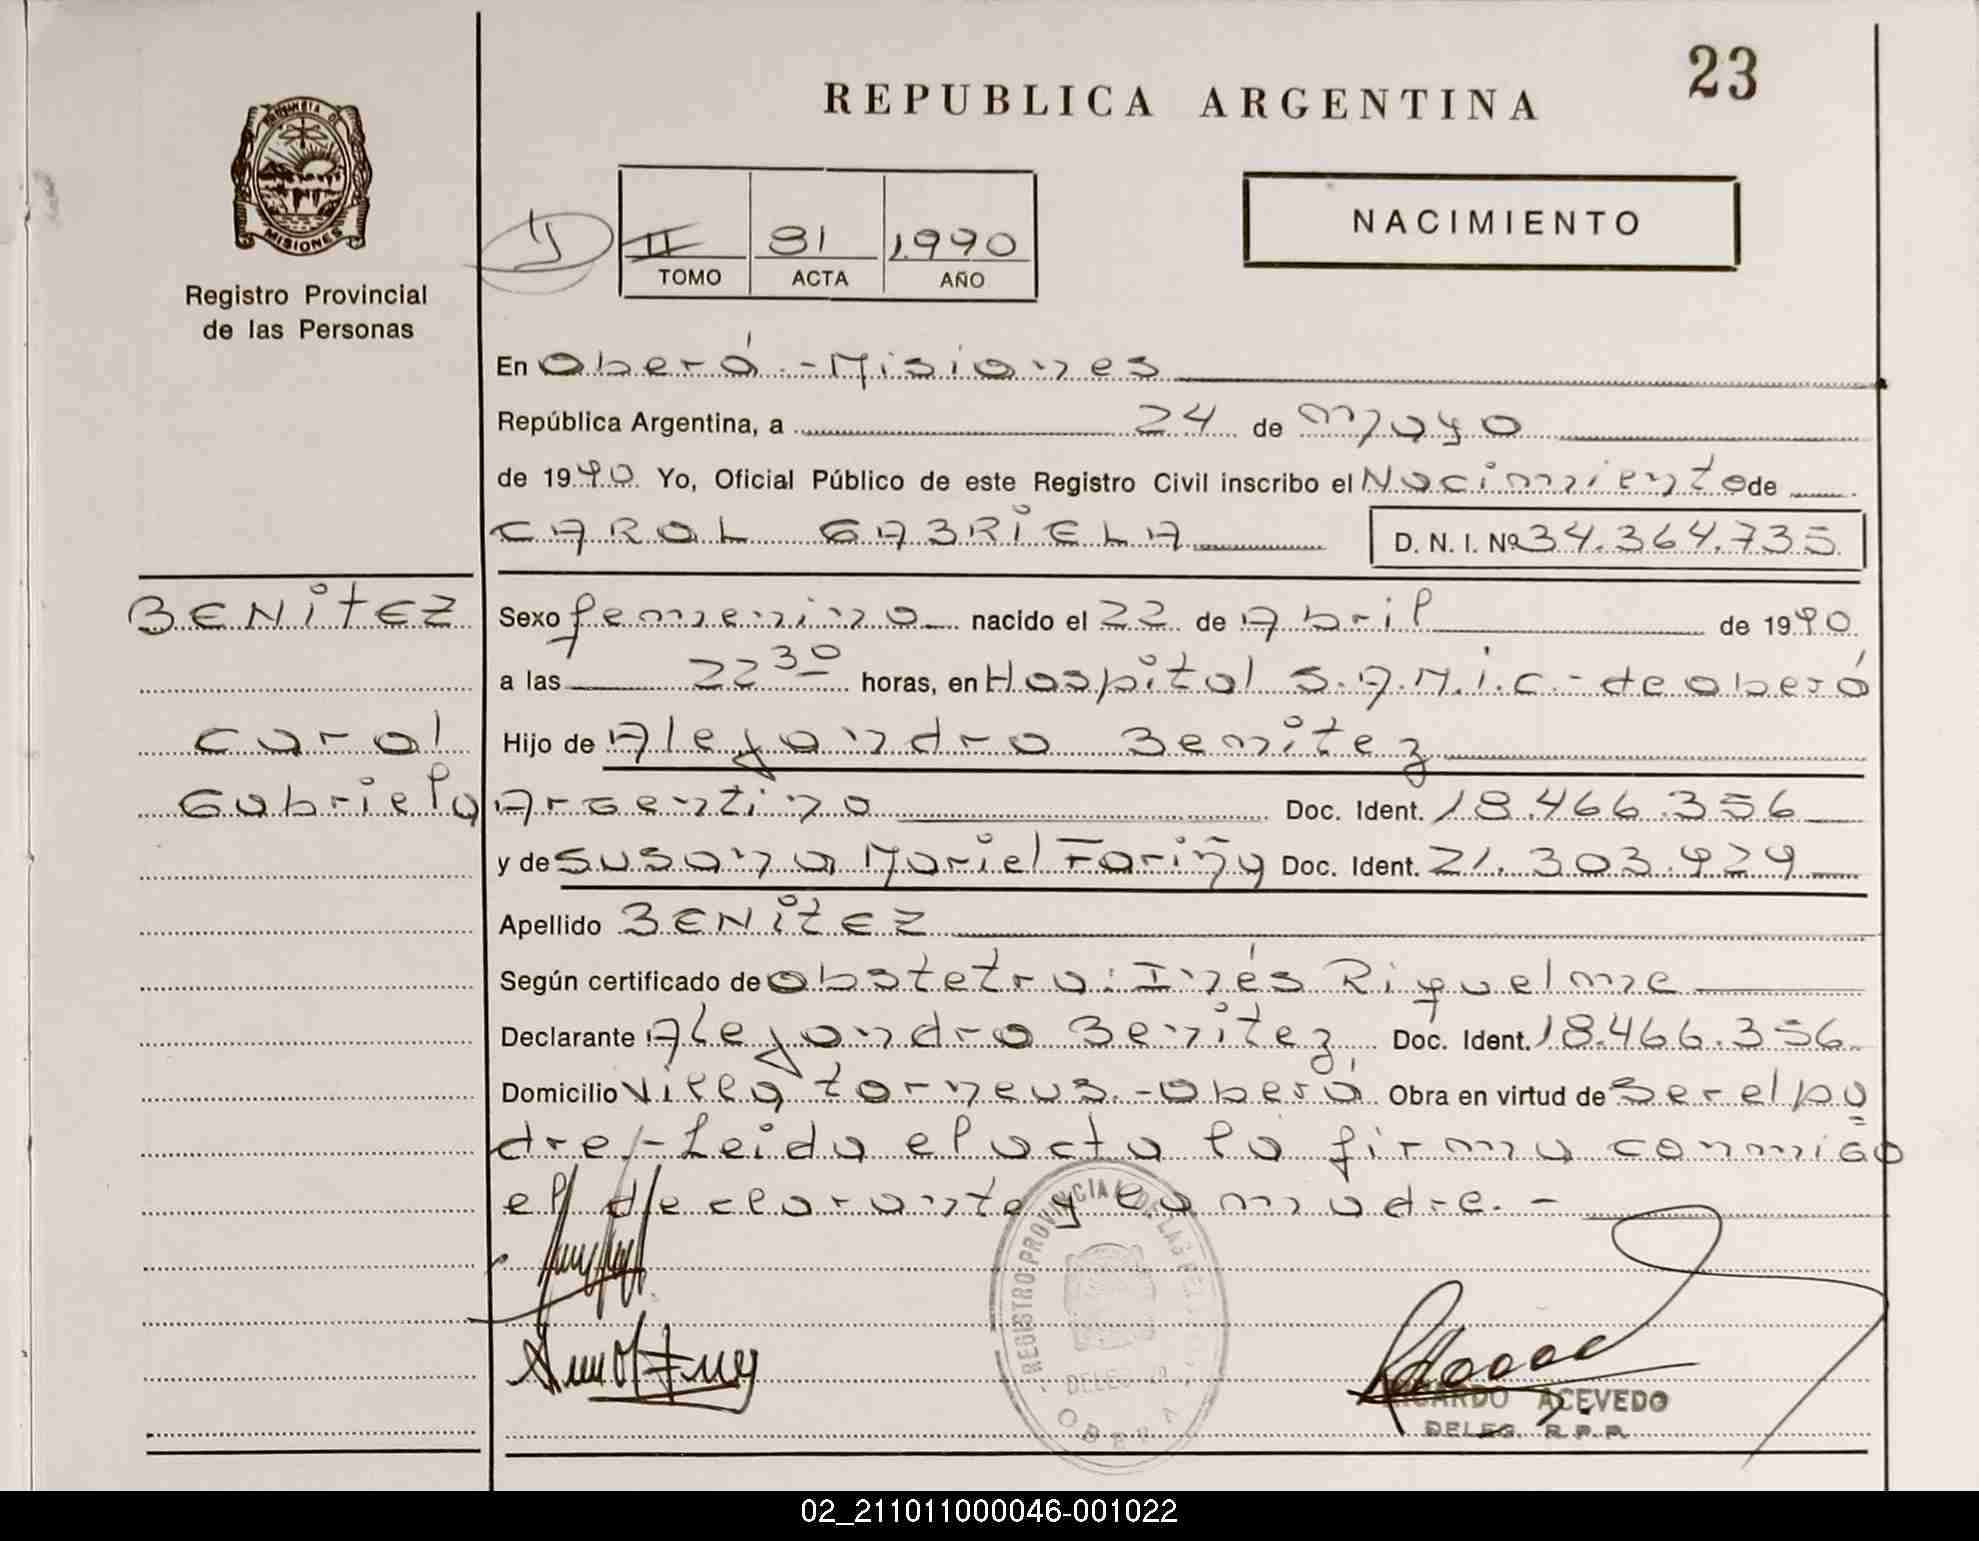 23
REPUBLICA ARGENTINA
PROVINCIA DE
MISIONES
Registro Provincial
de las Personas
NACIMIENTO
II 81 1990
TOMO ACTA AÑO
En Oberá - Misiones
República Argentina, a 24 de mayo
de 1990 Yo, Oficial Público de este Registro Civil inscribo el Nacimiento de
CAROL GABRiELA D. N. I. Nº 34.364.735
BENiTEZ
Carol
Gabriela
Sexo femenino nacido el 22 de Abril de 1990
a las 22 30 horas, en Hospital S.A.M.i.C.- de oberá
Hijo de Alejandro Benitez
Argentino Doc. Ident. 18.466.356
y de Susana Mariel Fariña Doc. Ident. 21.303.929
Apellido BENiTEZ
Según certificado de obstetra: Inés Riquelme
Declarante Alejandro Benitez, Doc. Ident. 18.466.356
Domicilio Villa torneus.-oberá Obra en virtud de Ser el pa=
dre/-Leida el acta la firma conmigo
el declarante y la madre.-
REGISTRO PROVINCIAL DE LAS PERSONAS
OBERA
RICARDO ACEVEDO
DELEG. R.P.P.
02_211011000046-001022